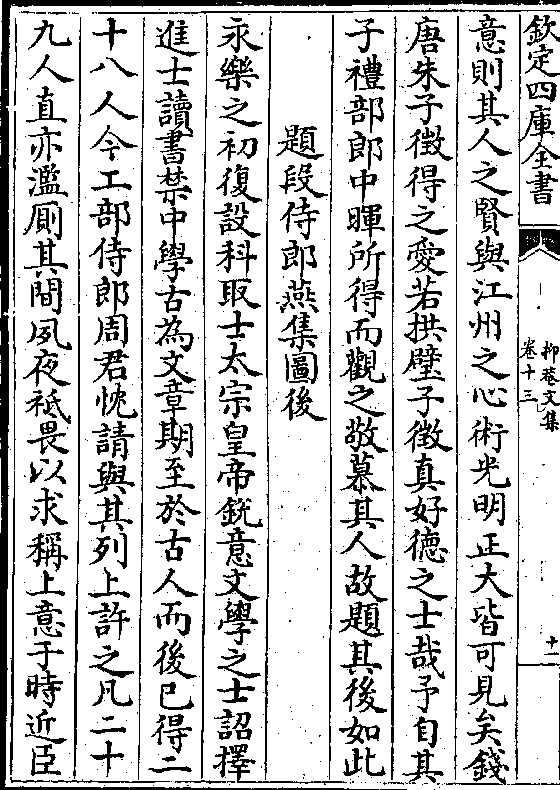 欽定四庫全書
抑菴文集
卷十三
十一
意則其人之賢與江州之心術光明正大皆可見矣錢
唐朱子徵得之愛若拱璧子徵真好德之士哉予自其
子禮部郎中暉所得而觀之敬慕其人故題其後如此
題段侍郎燕集圖後
永樂之初復設科取士太宗皇帝銳意文學之士詔擇
進士讀書禁中學古為文章期至於古人而後已得二
十八人今工部侍郎周君忱請與其列上許之凡二十
九人直亦濫厠其間夙夜祗畏以求稱上意于時近臣